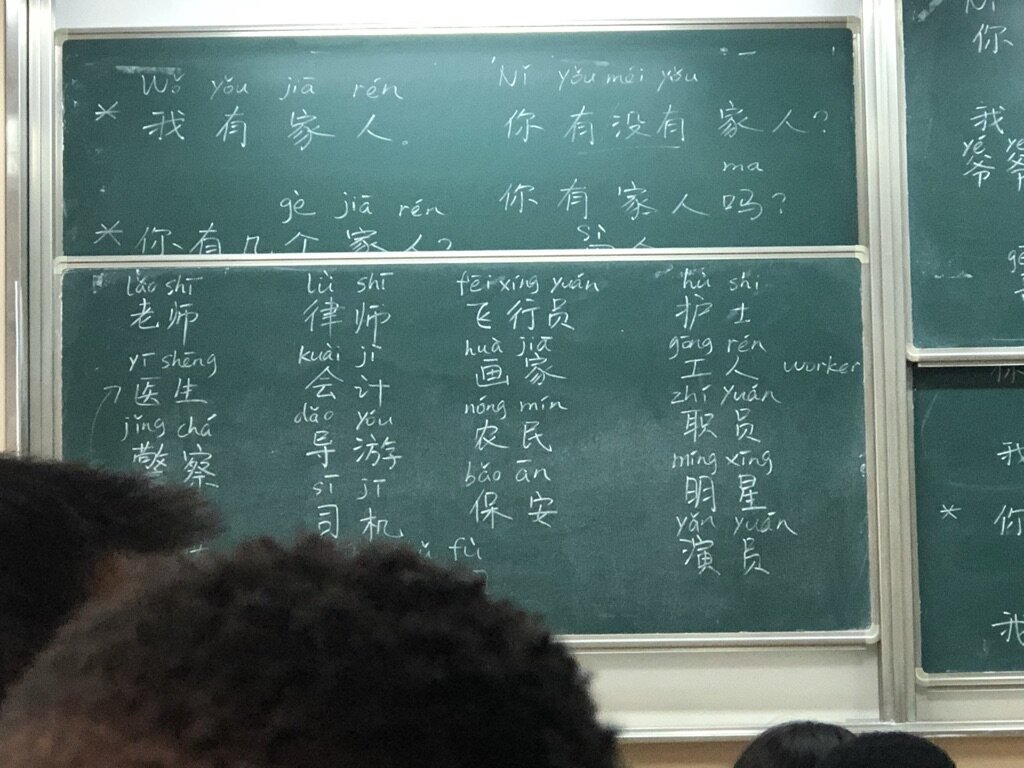 Wǒ yǒu jiā rén
* 我 有 家 人。
Nǐ yǒu méi yǒu
你 有 没 有 家 人?
ma
你 有 家 人 吗?
gè jiā rén
* 你 有 几 个 家 人?
sì
lǎo shī
老 师
yī shēng
医 生
jǐng chá
警 察
lǜ shī
律 师
kuài jì
会 计
dǎo yóu
导 游
sī jī
司 机
fù
fēi xíng yuán
飞 行 员
huà jiā
画 家
nóng mín
农 民
bǎo ān
保 安
hù shi
护 士
gōng rén
工 人 worker
zhí yuán
职 员
míng xīng
明 星
yǎn yuán
演 员
你
我
yé yé
爷 爷
我
* 你
我